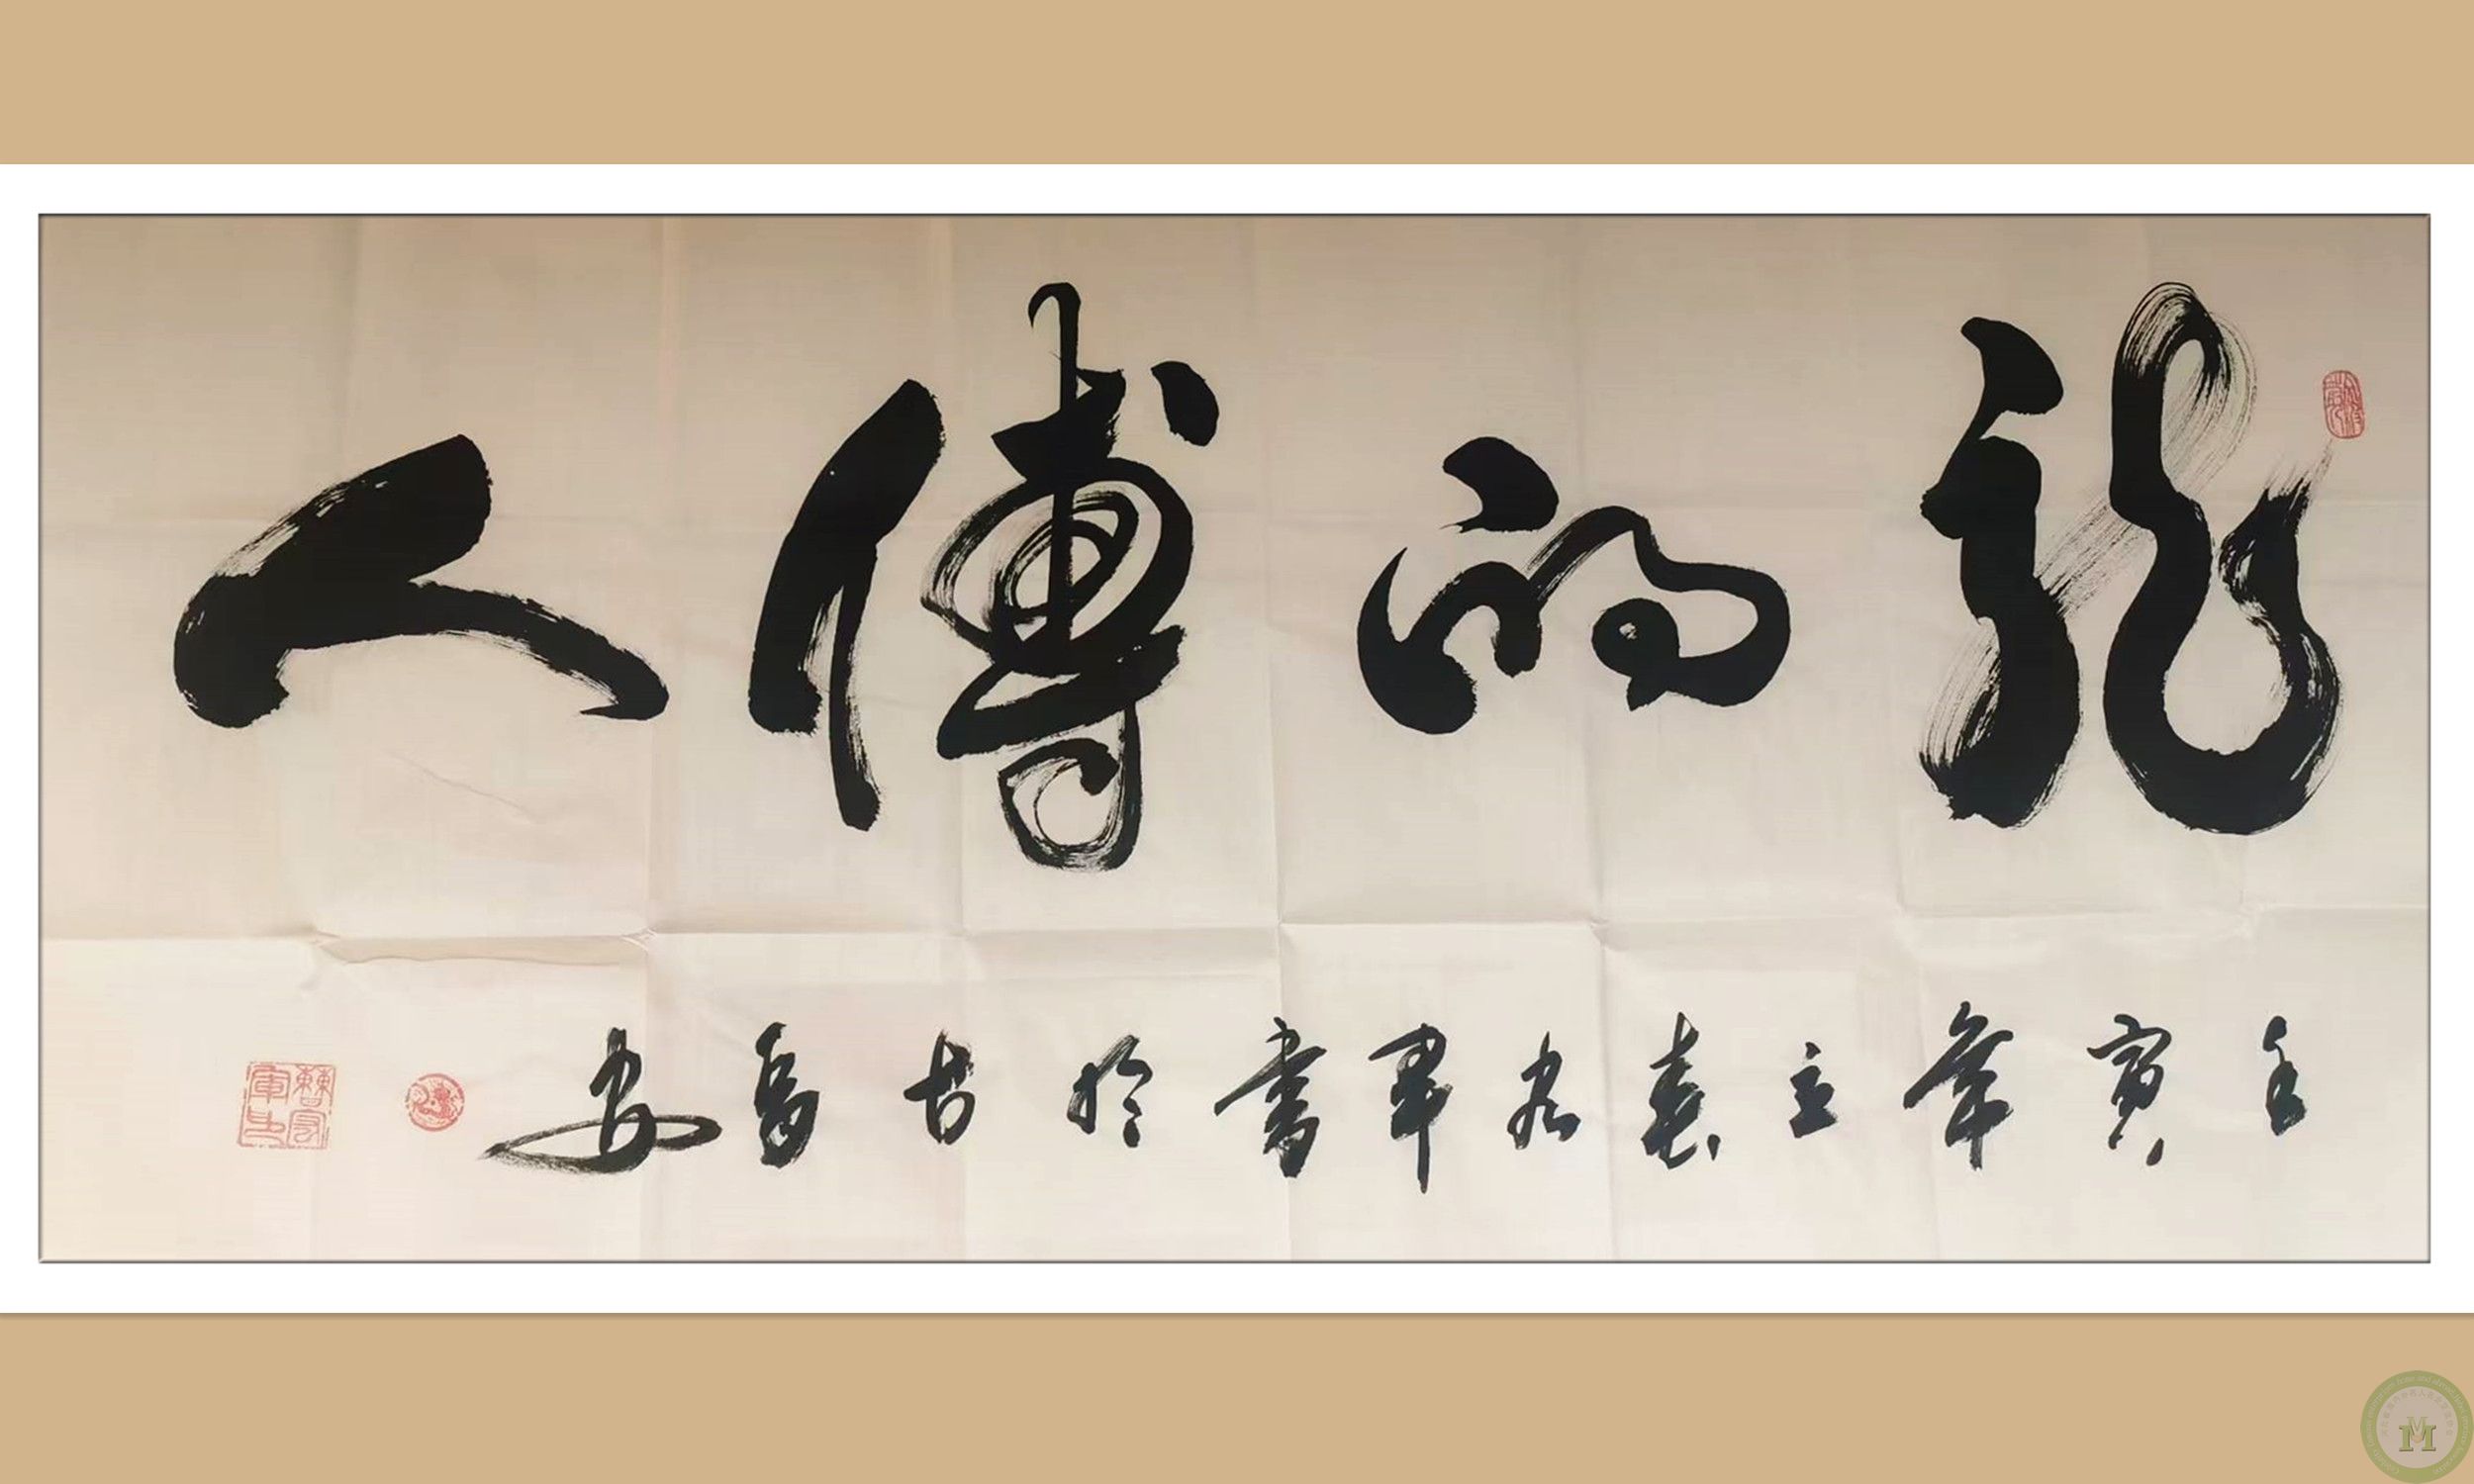 龍的傳人
壬寅年立春宏軍書於古長安